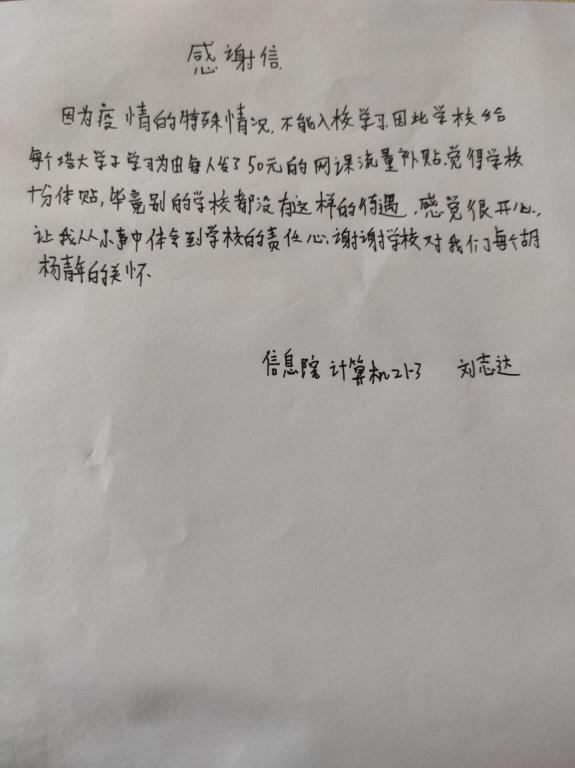 感谢信
因为疫情的特殊情况,不能入校学习.因此学校给
每个塔大学子学习为由每人发了50元的网课流量补贴.觉得学校
十分体贴,毕竟别的学校都没有这样的待遇,感觉很开心.
让我从小事中体会到学校的责任心.谢谢学校对我们每个胡
杨青年的关怀.
信息院 计算机21-3 刘志达